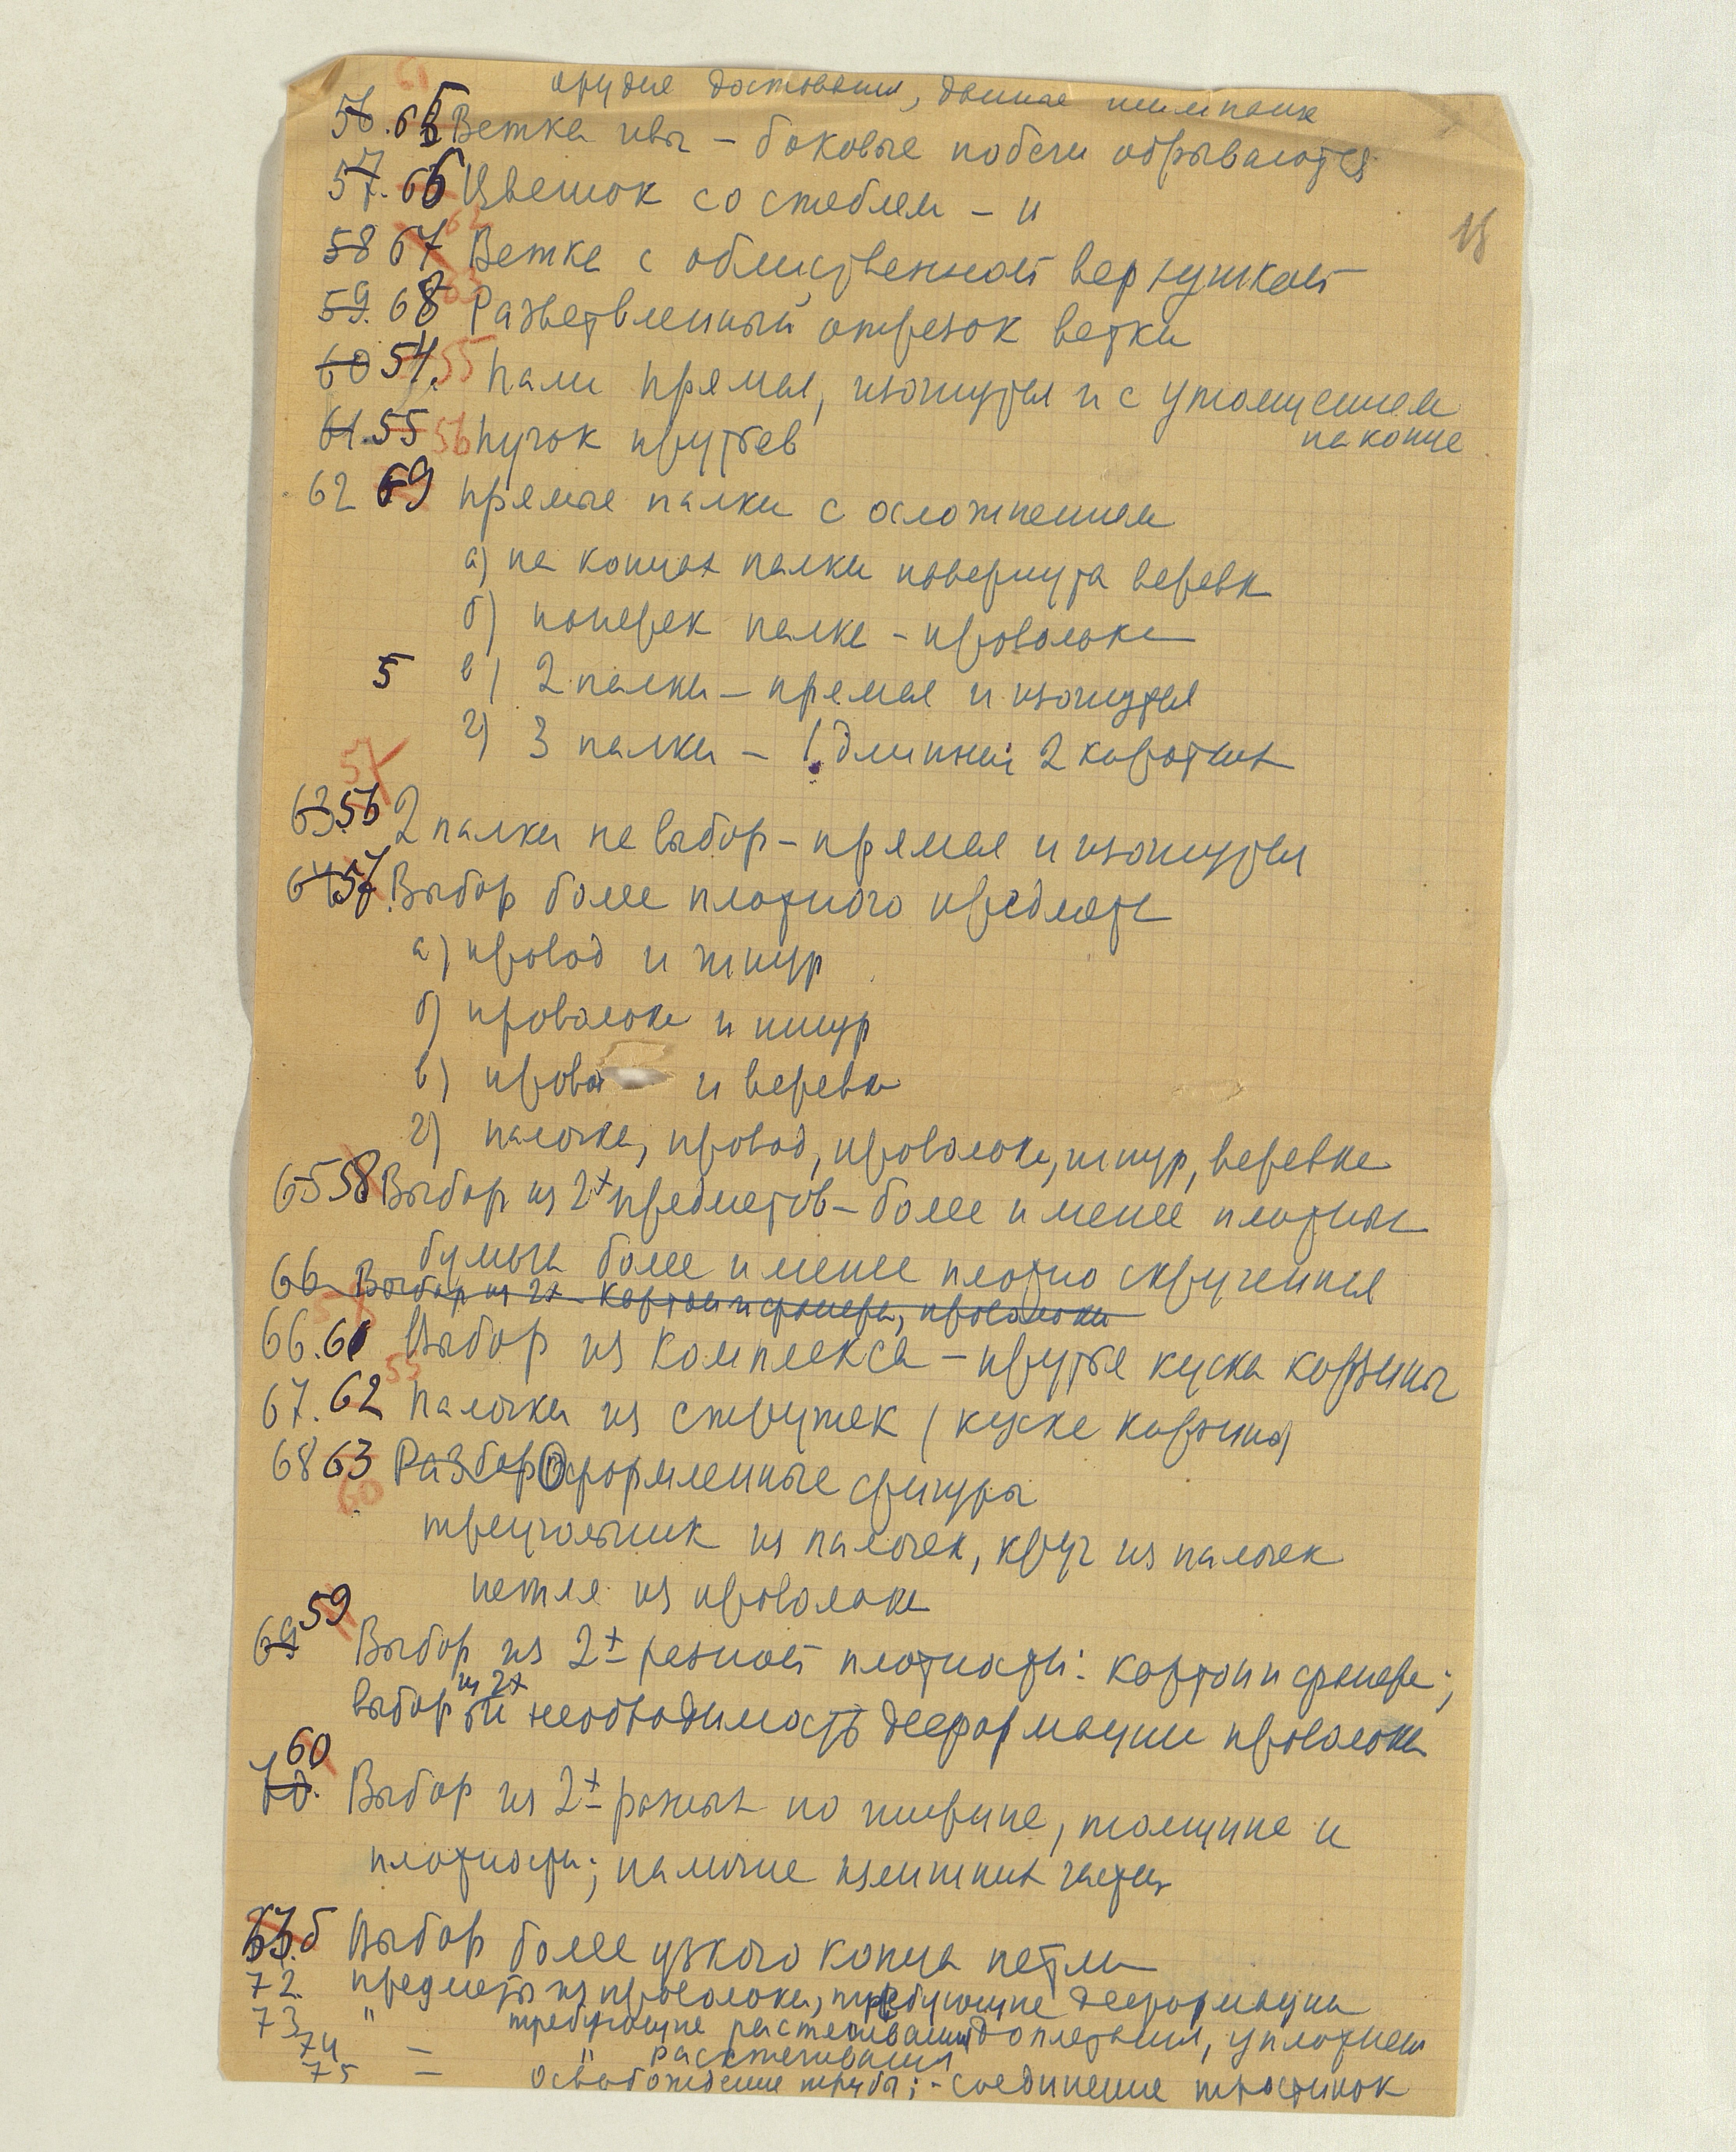 орудие доставания, данное шимпанзе
56. 65 Ветка ивы – боковые побеги обрываются
57. 66 Цветок со стеблем – и
58 67 62 Ветка с облиственной верхушкой
59. 68 63 Разветвленный отрезок ветки
60 54. 55 Палки прямая, изогнутая и с утолщением
на конце
61. 55 56 Пучок прутьев
62 69 Прямые палки с осложнением
а) на концах палки навернута веревка
б) поперек палки – проволока
5 в) 2 палки – прямая и изогнутая
г) 3 палки – 1 длинная 2 коротких
57
63. 56 2 палки на выбор – прямая и изогнутая
64 57. Выбор более плотного предмета
а) провод и шнур
б) проволока и шнур
в) прово и веревка
г) палочка, провод, проволока, шнур, веревка
65 58 Выбор из 2х предметов – более и менее плотных
бумага более и менее плотно скрученная
66 Выбор из 2х – картон и фанера, проволока
66. 61 Выбор из комплекса – прутья куска корзины
67. 62 Палочки из стружек (куска корзины)
68 63 Разбор Оформленные фигуры
60
треугольник из палочек, круг из палочек
петля из проволоки
69 59 Выбор из 2х разной плотности: картон и фанера;
из 2х
выбор и необходимость деформации проволоки
70. 60 Выбор из 2х разных по ширине, толщине и
плотности; наличие излишних частей
б Выбор более узкого конца петли
72. предметы из проволоки, требующие деформации
73 " требующие растягивания доплетания, уплотнения
74 = " расстегивания
75 = освобождение трубы; – соединение тростинок